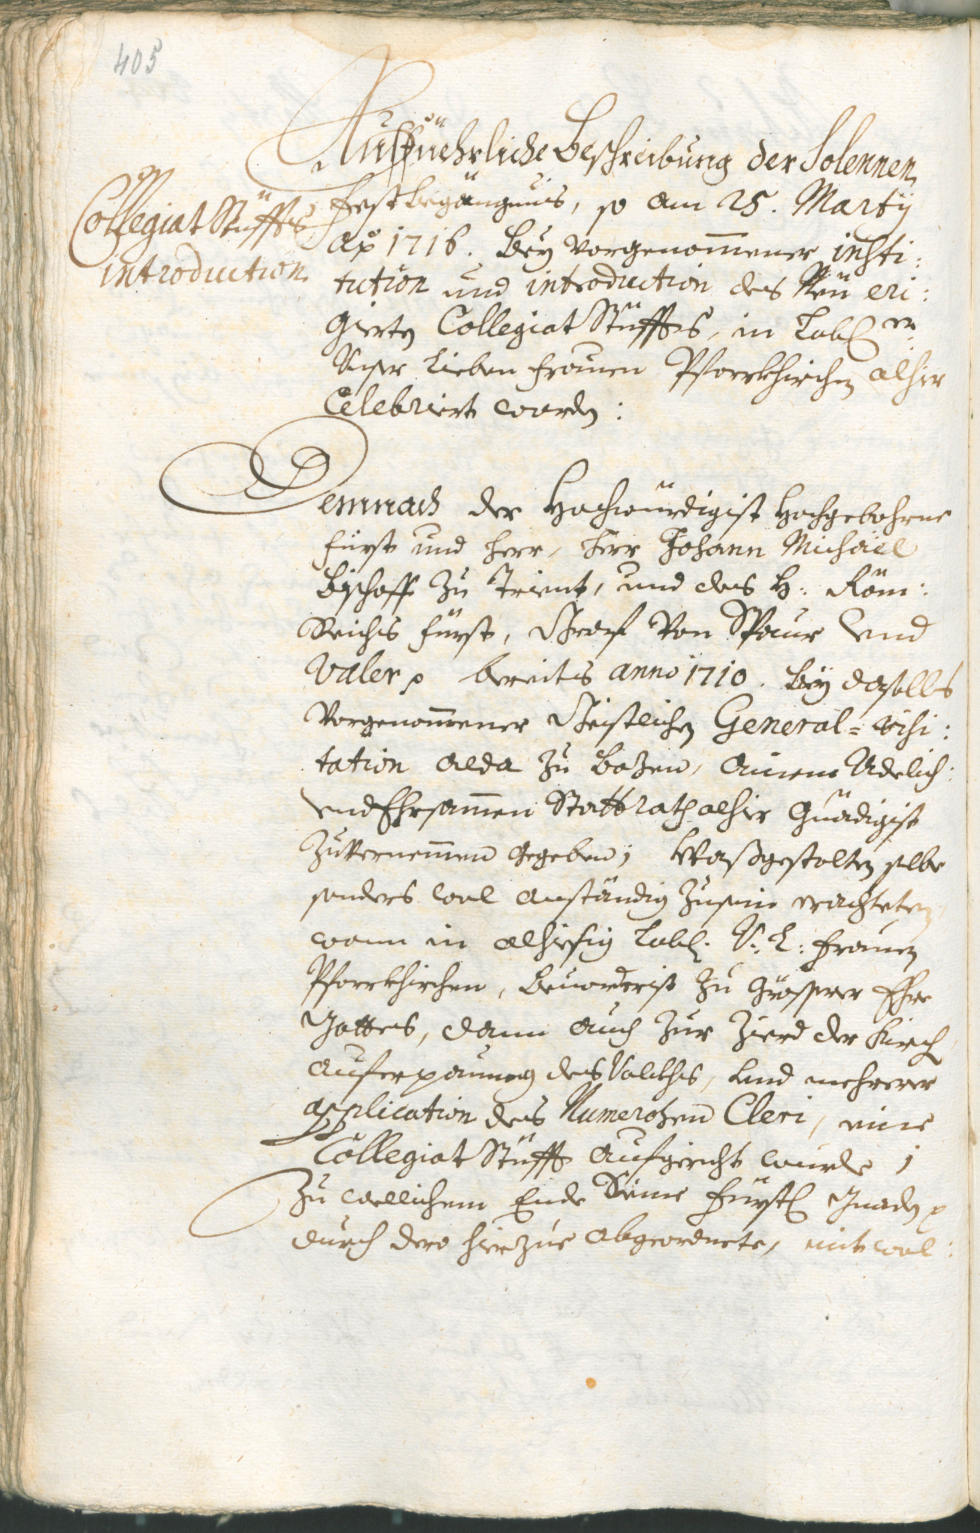 405
Collegiat Stüffts
introduction
Ausführliche Beschreibung der Solennen
Festbegängnis, so am 25. Martij
Ao 1716. bey vorgenommener insti:
tution und introduction des Neu eri:
gierten Collegiat Stüffts, in Lobl:en
Unser Lieben Frauen Pfarrkhirchen alhier
Celebriert worden:
Demnach der Hochwürdigist Hochgebohrne
Fürst und Herr, Herr Johann Michäel
Bischoff zu Trient, und des H: Röm:
Reichs Fürst, Graf von Spaur und
Valer p bereits anno 1710. bey daselbs
vorgenommener Geistlichen General=visi:
tation alda zu Bozen, ainem Adelich:
und Ehrsammen Stattrath alhier Gnädigist
zuvernemmen gegeben; Waßgestalten selbe
sonders wol anständig zusein erachteten,
wann in alhiesig Lobl: U: L: Frauen
Pfarrkhirchen, bevorderist zu grösserer Ehre
Gottes, dann auch zur Zierd der Kirch,
auferpauung des Volckhs, und mehrerer
application des Numerosen Cleri, eine
Collegiat Stüfft aufgericht wurde;
Zu wellichem Ende Seine Fürstl Gnaden p
durch dero hierzue abgeordnete, mit wol: